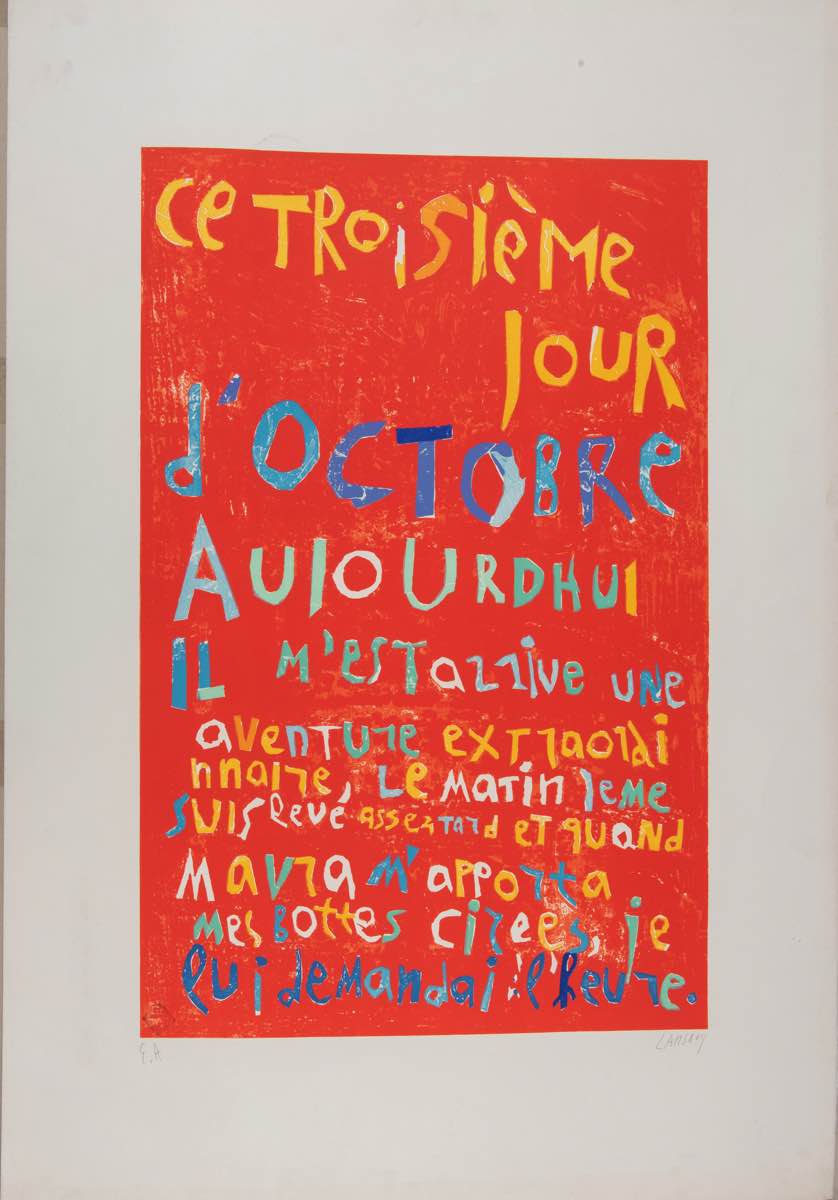 ce TROisième
JOUR
d'OCTOBRe
AUJOURDHUI
IL m'est arrive une
aventure extraordi
nnaire, Le matin jeme
suis levé assez tard et quand
mavra m'apporta
mes bottes cirees, je
lui demandai l'heure.
E.A
LANSKOY